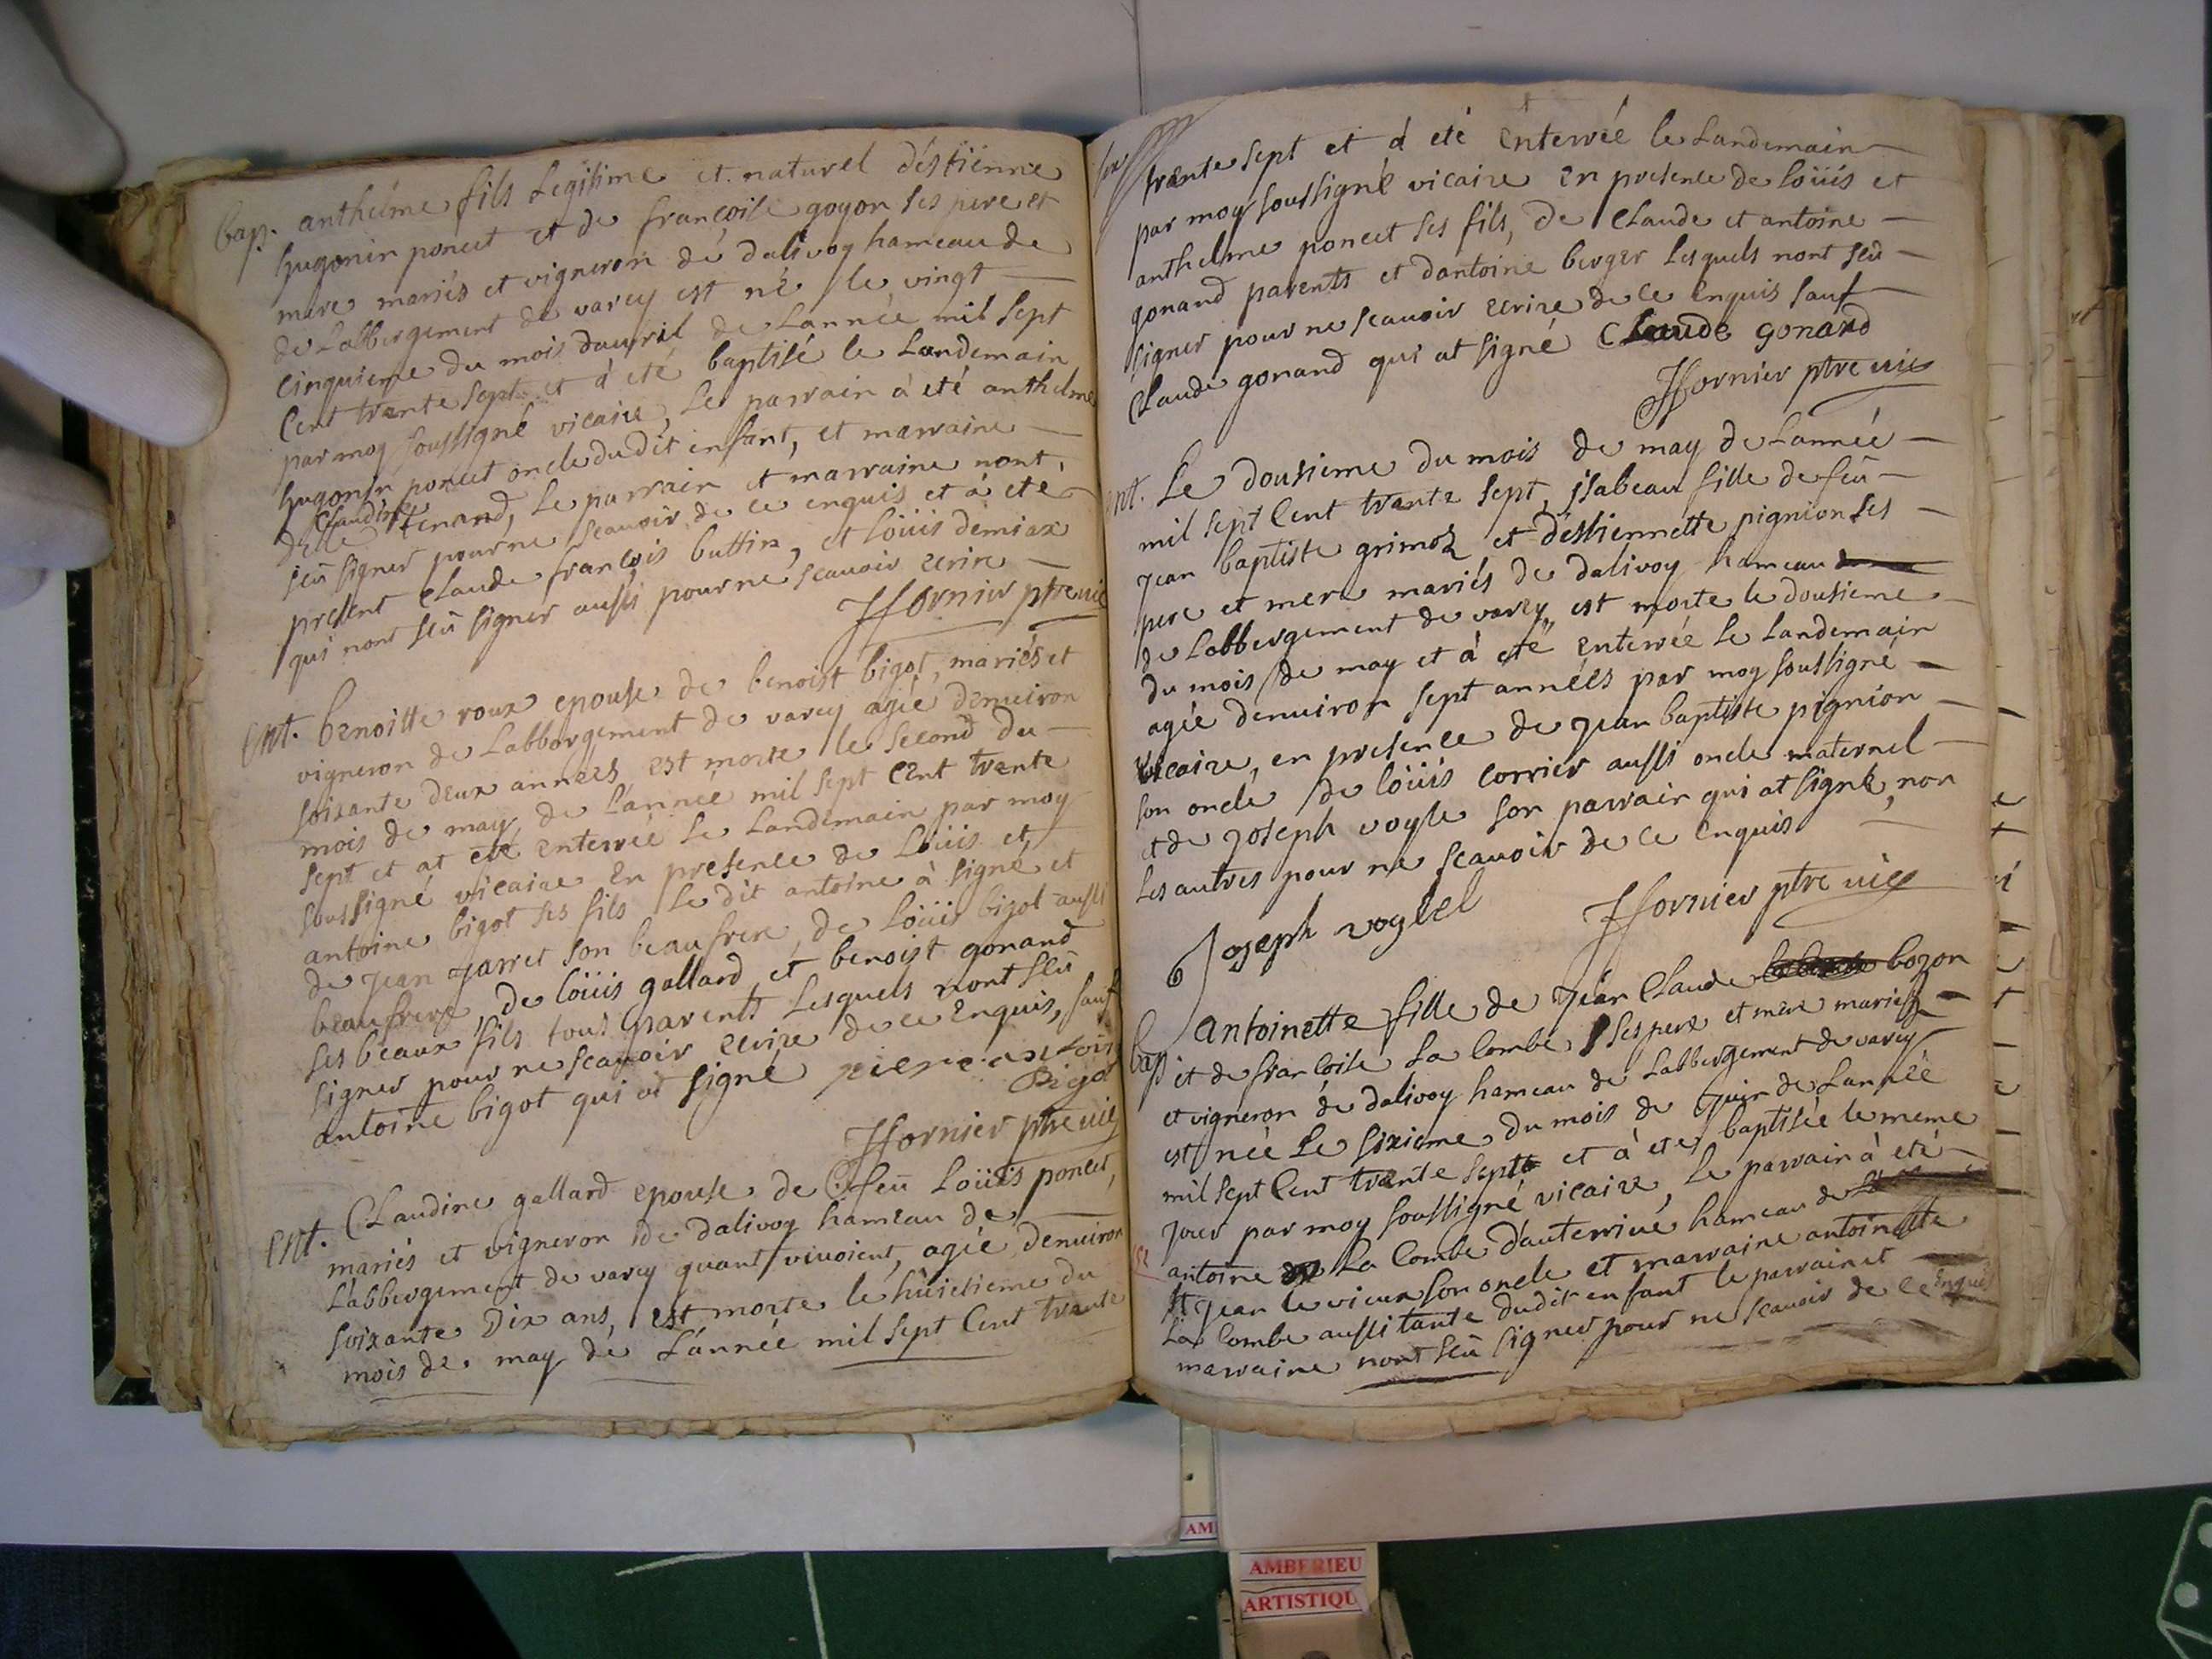 bap. anthelme fils Legitime et naturel déstienne
hugonin poncet et de françoise goyon ses pere et
mere mariés et vigneron de dalivoy hameau de
de Labbergement de varey est né le vingt
cinquieme du mois dauvril de Lannée mil sept
Cent trente sept et à eté baptisé le Landemain
par moy soussigné vicaire, Le parrain à eté anthelme
hugonin poncet oncle dudit enfant, et marraine
Claudine
delle tenand, Le parrain et marraine nont
sçû signer pour ne scauoir de ce enquis et à eté
present Claude françois buttin, et loüis demiax
qui nont sçû signer aussi pour ne scauoir ecrire
JJornier ptre vic
Ent. benoitte roux epouse de benoist bigot, mariés et
vigneron de Labbergement de varey agée denuiron
soixante deux années est morte le second du
mois de may de L'année mil sept cent trente
sept et at eté enterrée Le Landemain par moy
soussigné vicaire En presence de Loüis et
antoine bigot ses fils Le dit antoine à signé et
de jean jarret son beaufrere, de Loüis bigot aussi
beaufrere, de loüis gallard et benoist gonand
ses beaux fils tous parents Lesquels nont sçû
signer pour ne scauoir ecrire de ce enquis, sauf
antoine bigot qui at signé pierre antoin
Bigot
JJornier ptre vic
Ent. Claudine gallard epouse de feu Loüis poncet,
mariés et vigneron de dalivoy hameau de
Labbergement de varey quant viuoient, agée denuiron
soixante Dix ans, est morte le huictieme du
mois de may de L'année mil sept Cent trente
trente sept et à eté Enterrée le Landemain
par moy soussigné vicaire En presence de loüis et
anthelme poncet ses fils, de Claude et antoine
gonand parents et dantoine berger Lesquels nont sçû
signer pour ne scauoir ecrire de ce Enquis sauf
Claude gonand qui at signé Claude gonand
JJornier ptre vic
Ent. Le dousieme du mois de may de Lannée
mil sept Cent trente sept, jsabeau fille de feu
jean baptiste grimoz et déstiennette pignion ses
pere et mere mariés de dalivoy hameau
de Labbergement de varey, est morte le dousieme
du mois de may et à eté enterrée Le Landemain
agée denuiron sept années par moy soussigné
vicaire, en presence de jean baptiste pignion
son oncle de loüis corrier aussi oncle maternel
et de joseph vogle son parrain qui at signé, non
Les autres pour ne scauoir de ce enquis
Joseph voglel JJornier ptre vic
bap antoinette fille de jean Claude bozon
et de francoise La Combe ses pere et mere mariés
et vigneron de dalivoy hameau de Labbergement de varey
est née Le sixieme du mois de juin de Lannée
mil sept Cent trente sept et à eté baptisée le meme
jour par moy soussigné vicaire, Le parrain à eté
antoine La Combe d'auterriue hameau de
St jean le vieux son oncle et marraine antoinette
La Combe aussi tante dudit enfant le parrain et
marraine nont sçû signer pour ne scauoir de ce Enquis
AM
AMBERIEU
ARTISTIQU